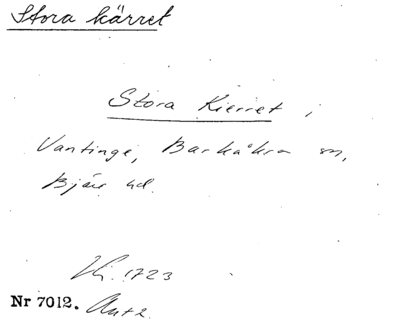 Stora kärret
Stora Kierret i
Vantinge, Barkåkra sn,
Bjäre hd.
1723
Nr 7012.